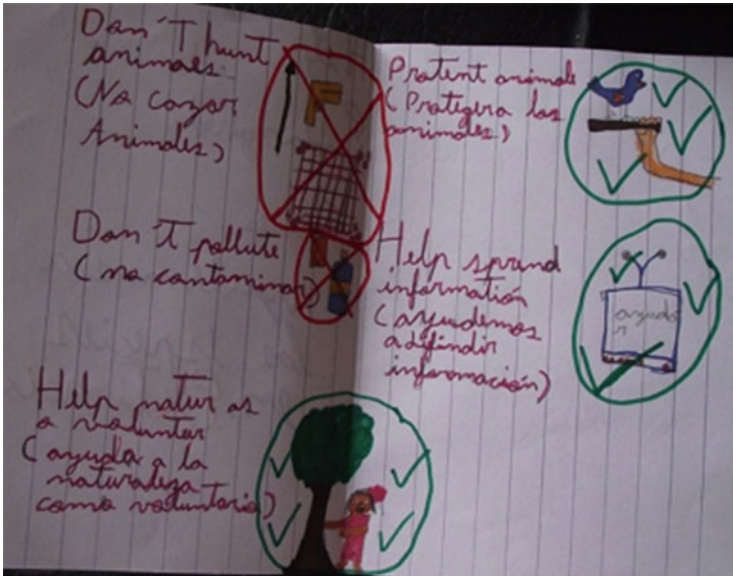 Don't hunt
animals
(No cazar
Animales)
Don't pollute
(no contaminar)
Help natur as
a voluntar
(ayuda a la
naturaleza
como voluntario)
Protent animals
(Protegera los
animales)
Help sprend
information
(ayudemos
a difindir
información)
ayuda
r